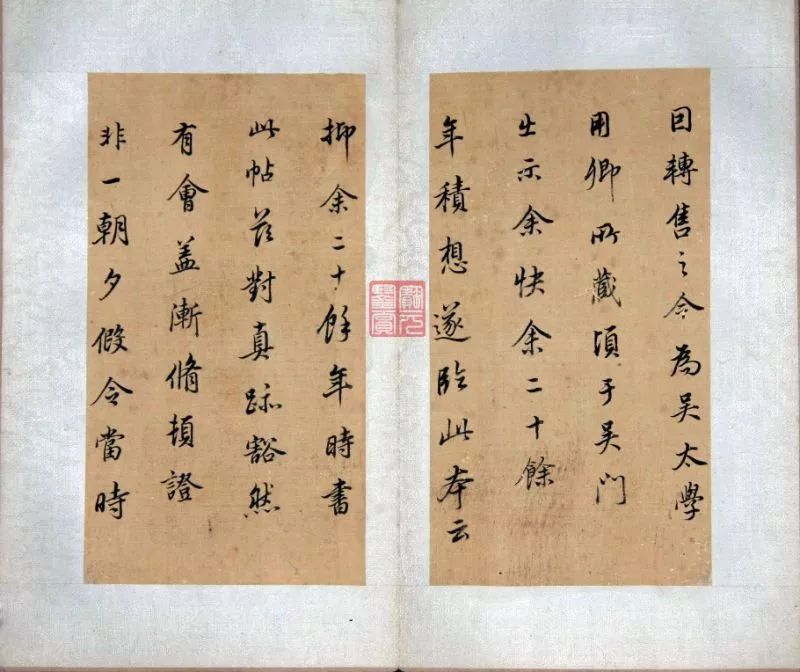 回轉售之今為吴太學
用卿所藏頃于吴门
出示余快余二十餘
年積想遂臨此本云
抑余二十餘年時書
此帖茲對真跡豁然
有會蓋漸脩頓證
非一朝夕假令當時